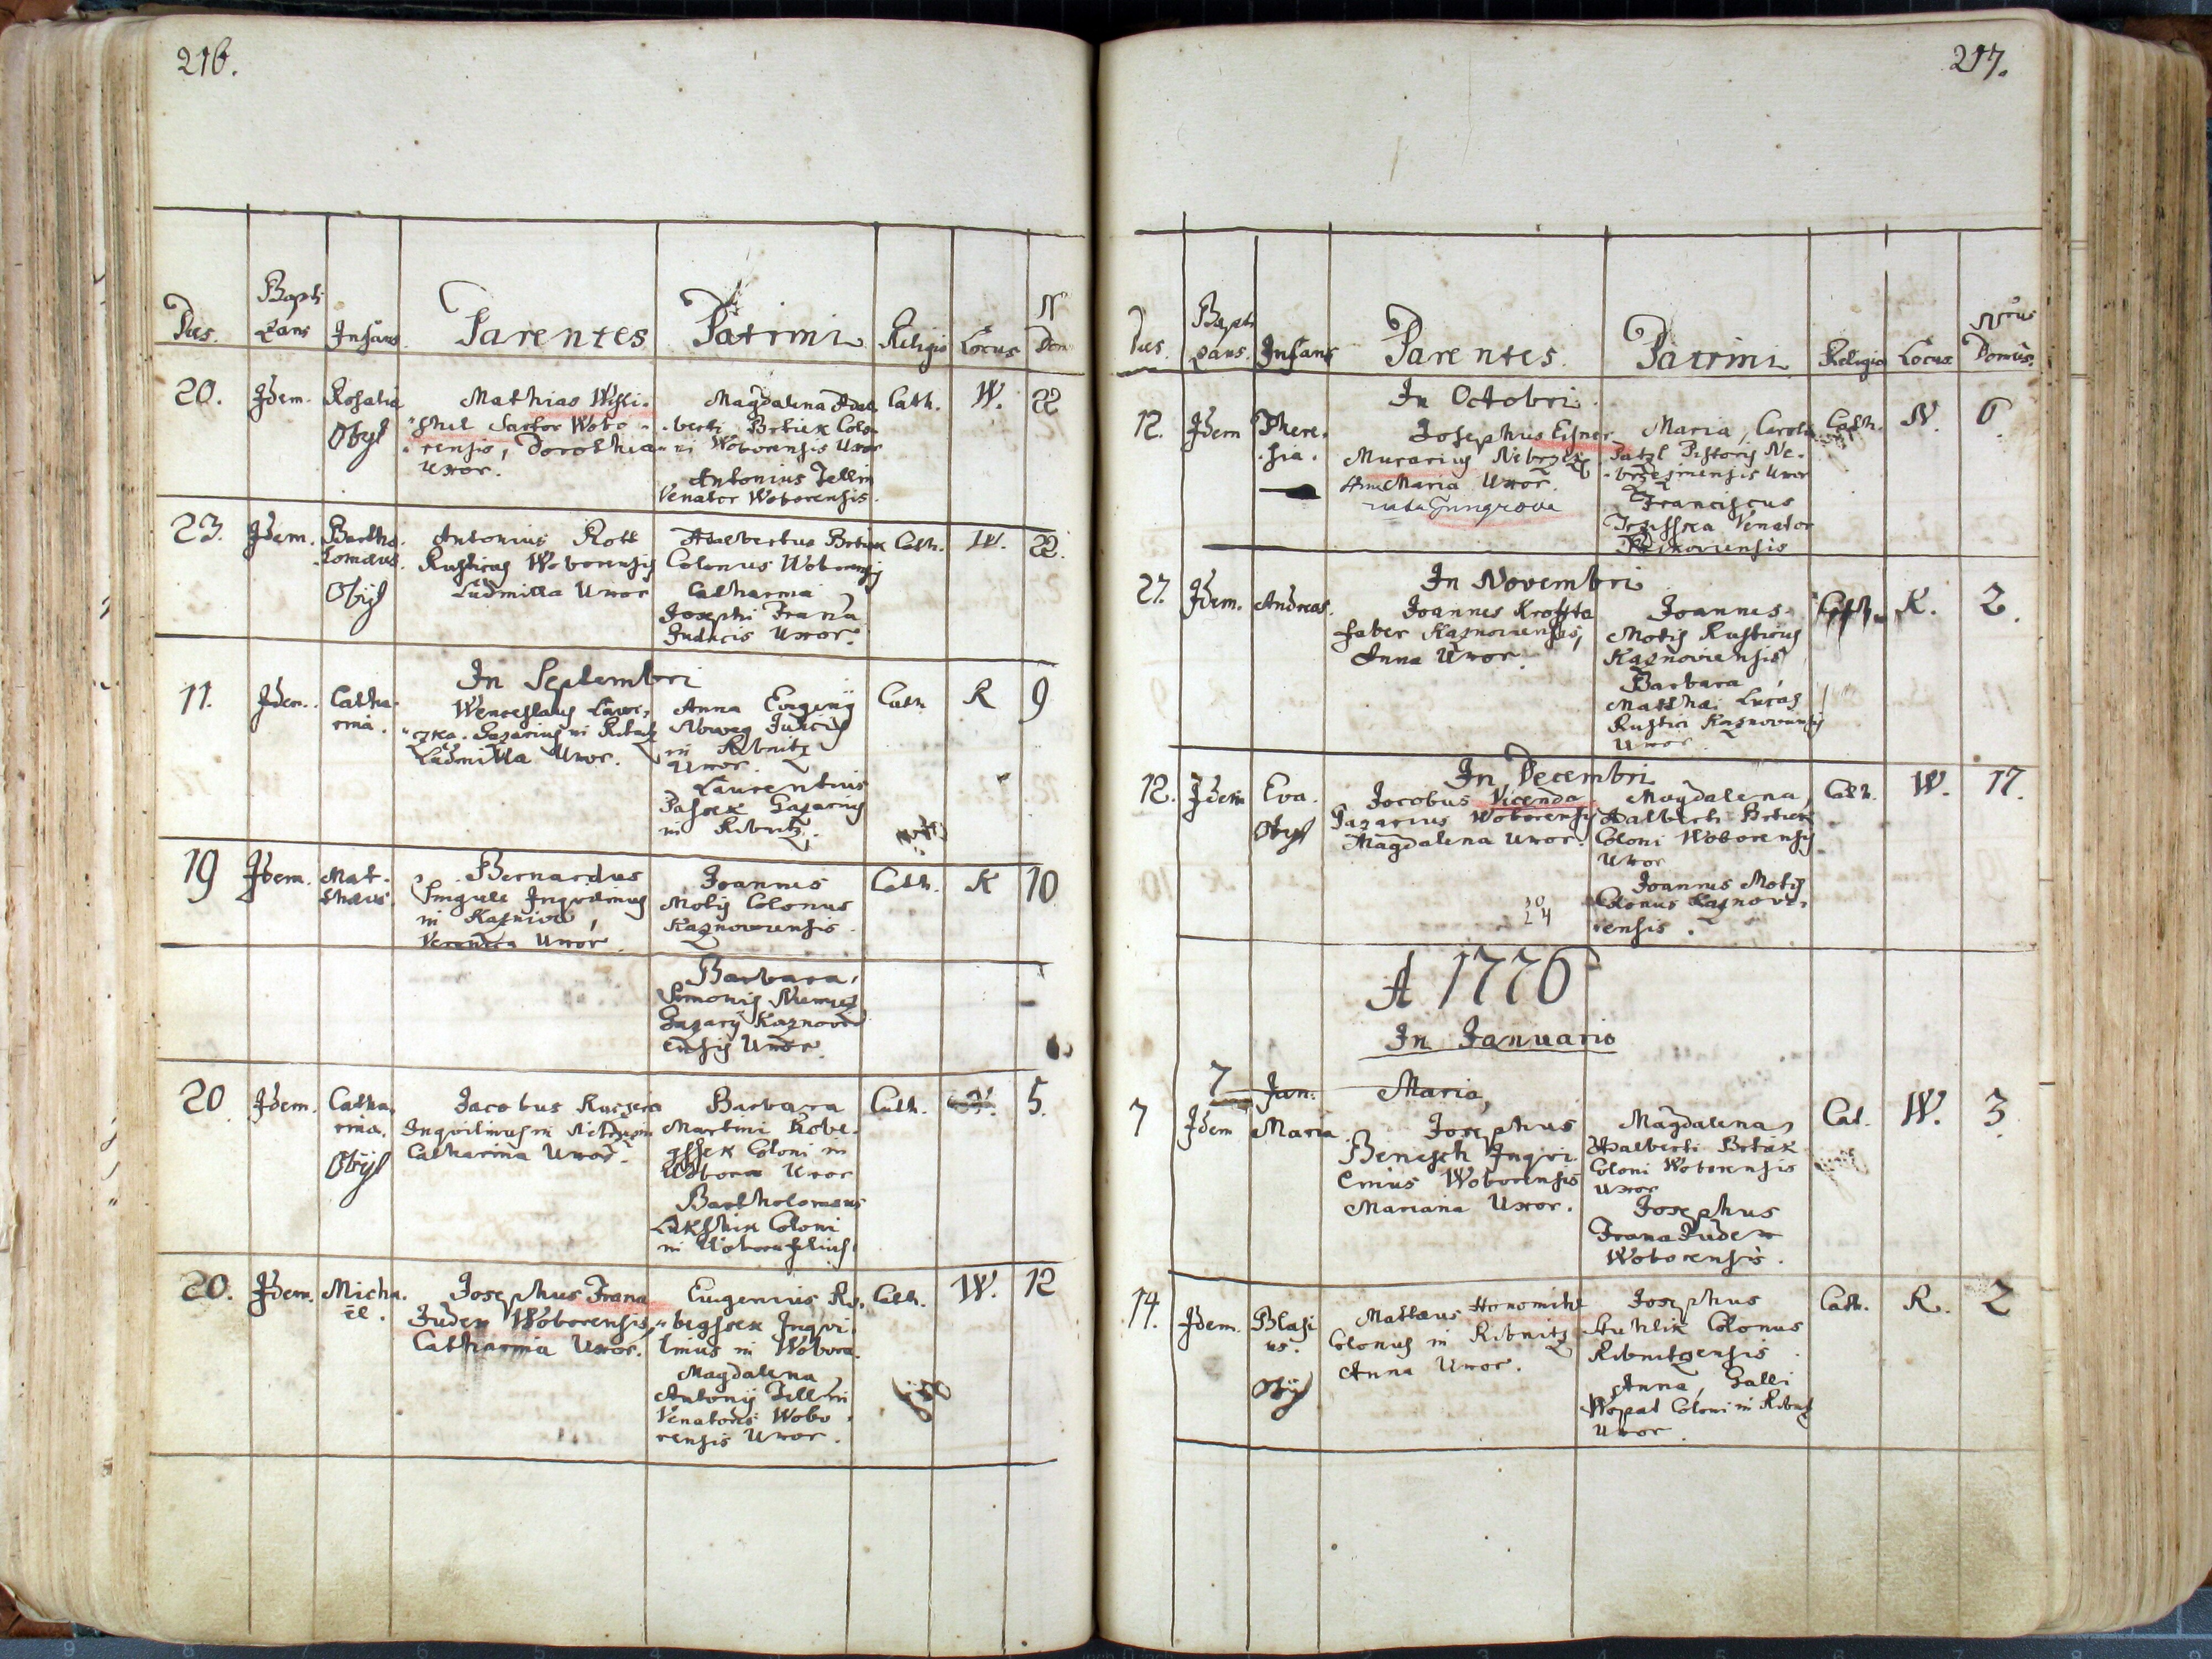 216.
Dies. Bapti
zans Infans. Parentes Patrini Religio Locus N
Dom
20. Idem. Rosalia
Obijt
Mathias Wissi-
Sartor Wobo-
rensis, Dorothea
Uxor.
Magdalena Adal
berti Brtiek Colo-
ni Woborensis Uxor
Antonius Jellin
Venator Woborensis.
Cath. W. 22
23. Idem. Bartho-
lomæus.
Obijt
Antonius Kott
Rusticus Woborensis
Ludmilla Uxor
Adalbertus Brtiek
Colonus Woborensis
Catharina
Josephi Frana
Judicis Uxor.
Cath. W. 22.
In Septembri
11. Idem. Catha-
rina.
Wenceslaus
Gazarius in Ribnitz
Ludmilla Uxor.
Anna Eugenij
Nowag Judicis
in Ribnitz
Uxor.
Laurentius
Passek Gazarius
in Ribnitz.
Cath R 9
19 Idem. Mat-
thæus.
Bernardus
Singule Inquilinus
in Kaznov,
Veronica Uxor.
Joannes
Motis Colonus
Kaznoviensis.
Cath. K 10
Barbara,
Simonis
Gazarij Kaznovi
ensis Uxor.
20. Idem. Catha-
rina.
Obijt
Jacobus Kuczera
Inquilinus in
Catharina Uxor.
Barbara
Martini Kobe-
Coloni in
Wobora Uxor
Bartholomæus
Coloni
in Wobora filius.
Cath. 5.
20. Idem. Micha-
ël.
Josephus Frana
Judex Woborensis,
Catharina Uxor.
Eugenius Ry-
bissek Inqvi-
linus in Wobora.
Magdalena
Antonij Jellin
Venatoris Wobo-
rensis Uxor.
Cath. W. 12
217.
Dies. Bapti
zans. Infans Parentes. Patrini Religio Locus Nrus
Domus.
In Octobri.
12. Idem There-
sia.
Josephus Eisner
Murarius
Anna Maria Uxor.
nata Jungrova
Maria, Caroli
Patzl Pistoris Ne-
brzesinensis Uxor
Franciscus
Venator
Cath. N. 6
In Novembri
27. Idem. Andreas.
Joannes Kroffta
faber Kaznoviensis,
Anna Uxor.
Joannes
Motis Rusticus
Kaznoviensis
Barbara,
Matthæi Lucas
Rustici Kaznoviensis
Uxor.
Cath. K. 2.
In Decembri
12. Idem Eva.
Obijt
Jacobus Vicenda
Gazarius Woborensis
Magdalena Uxor.
Magdalena,
Adalberti Brtiek
Coloni Woborensis
Uxor
Joannes Motis
Colonus Kaznovi-
ensis.
Cath. W. 17.
30
24
A 1776
In Januario
7 Jan: Maria,
7 Idem Maria
Josephus
Benesch Inqvi-
linus Woborensis
Mariana Uxor.
Magdalena,
Adalberti Brtiek
Coloni Woborensis
Uxor
Josephus
Frana Judex
Woborensis.
Cat. W. 3
14. Idem. Blasi
us.
Obijt
Mathæus Honomichl
Colonus in Ribnitz
Anna Uxor.
Josephus
Stuhlik Colonus
Ribnitzensis.
Anna, Galli
Wopat Coloni in Ribnitz
Uxor.
Cath. R. 2